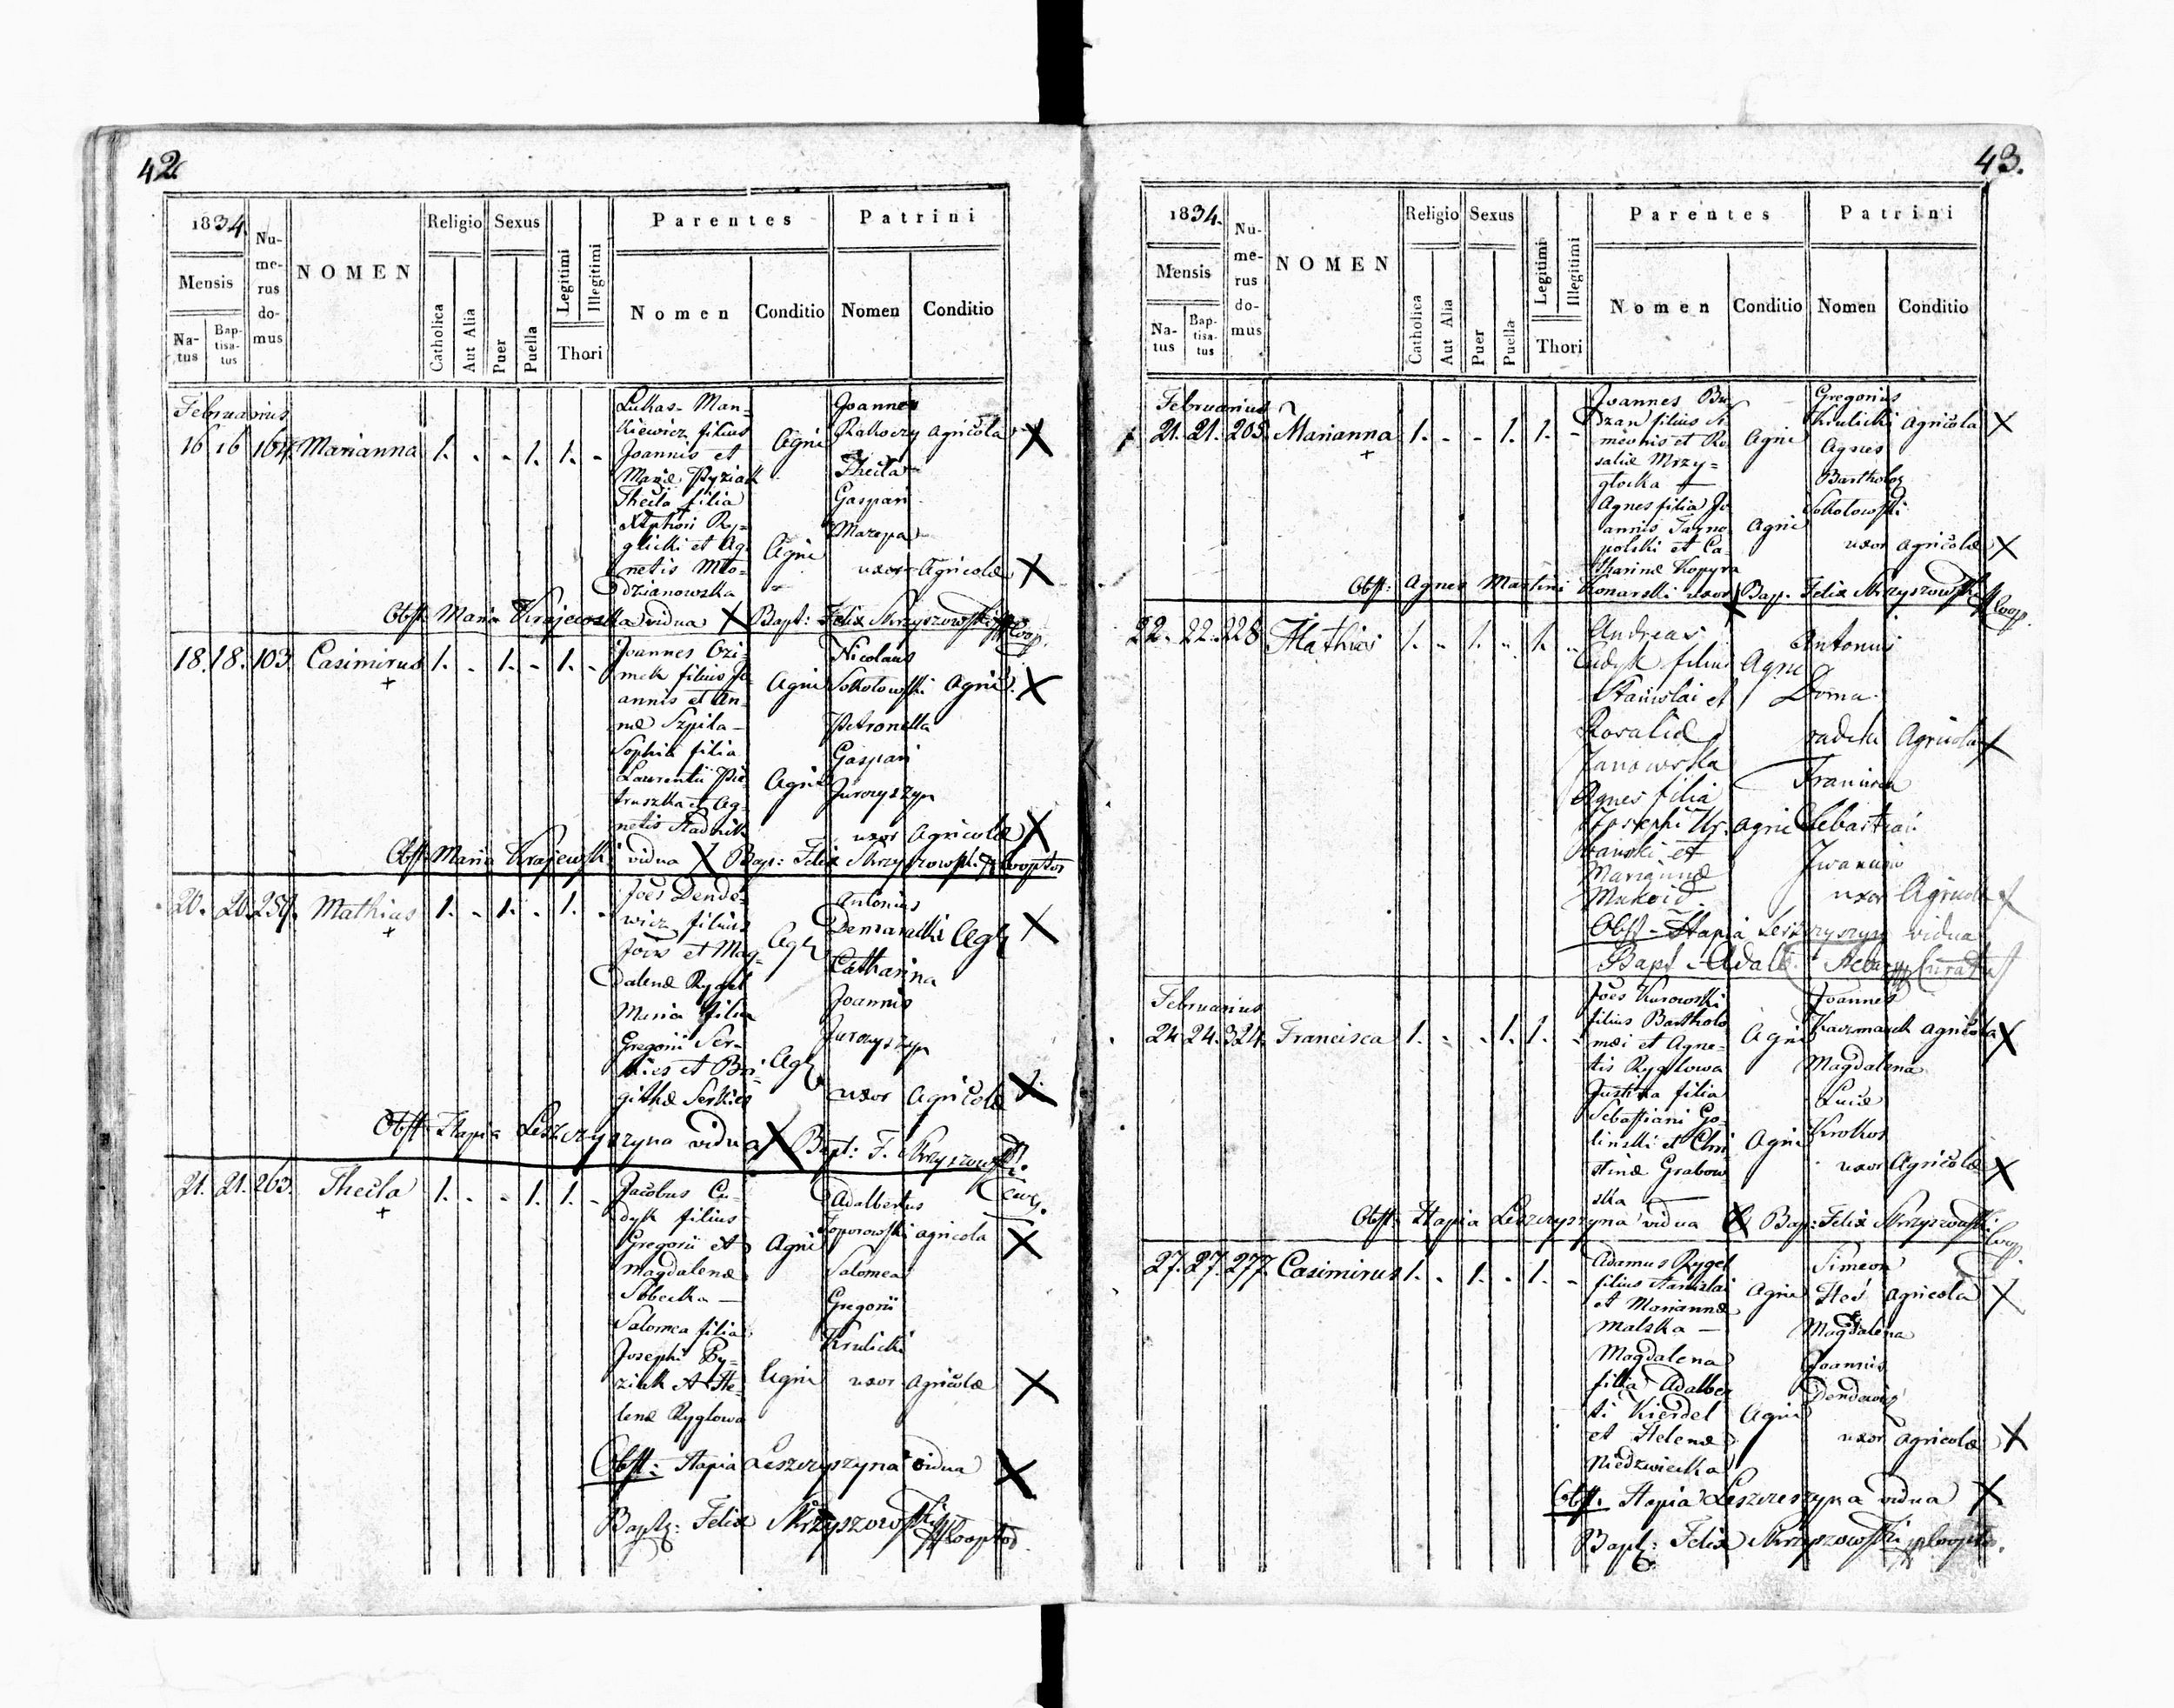 42
1834.
Mensis
Na-
tus
Bap-
tisa-
tus
Nu-
me-
rus
do-
mus
NOMEN
Religio
Catholica
Aut Alia
Sexus
Puer
Puella
Legitimi
Illegitimi
Thori
Parentes
Nomen
Conditio
Patrini
Nomen
Conditio
Februarius
16 16 164 Marianna 1. - - 1. 1. -
Lukas Man=
kiewicz filius
Joannis et
Mariæ Pyziak
Thecla filia
glicki et Ag-
netis Mło=
dzianowska
Agri
Agri
Joannes
Rakoczy agricola X
Thecla
Gaspari
Mazepa
uxor Agricolæ X
Obst. Maria Krajewska vidua X Bapt: Felix Skrzyszowski Coop.
18. 18. 103. Casimirus 1. - 1. - 1. -
+
Joannes Ozi-
mek filius Jo-
annis et An-
næ Szpila -
Sophia filia
Laurentii Pie-
truszka et Ag-
netis Hadnik
Agri
Agri
Nicolaus
Sokolowski Agri. X
Petronella
Gaspari
Juroyszyn
uxor agricolæ X
Obst. Maria Krajewski vidua X Bap: Felix Skrzyszowski Cooptor
20. 20. 259. Mathias 1. - 1. - 1. -
+
Joēs Dende-
wicz filius
Jois et Mag-
dalenæ Rygel
Maria filia
Gregorii Ser-
kies et Bri-
githæ Serkies
Agr
Agr
Antonius
Demaradzki Agr X
Catharina
Joannis
Juroyszyn
uxor Agricolæ X
Obst. Hapia Leszczyszyna vidua X Bapt: F. Skrzyszowski.
21. 21. 263. Thecla 1. - - 1. 1. -
+
Jacobus Cu-
dyk filius
Gregorii et
Magdalenæ
Sobecka -
Salomea filia
Josephi Py-
ziak et He-
lenæ Ryglowa
Agri
Agri
Adalbertus
Toporowski agricola X
Salomea
Gregorii
Krulicki
uxor agricolæ X
Obst: Hapia Leszczyszyna vidua X
Baptz: Felix Skrzyszowski Cooptor
43.
1834.
Mensis
Na-
tus
Bap-
tisa-
tus
Nu-
me-
rus
do-
mus
NOMEN
Religio
Catholica
Aut Alia
Sexus
Puer
Puella
Legitimi
Illegitimi
Thori
Parentes
Nomen
Conditio
Patrini
Nomen
Conditio
Februarius
21. 21. 205. Marianna 1. - - 1. 1. -
+
Joannes Bu
dzan filius Si
meonis et Ro
saliæ Mrzy=
głocka
Agnes filia Jo
annis Tarno
polski et Ca-
tharinæ Kopyra
Agri
Agri
Gregorius
Krulicki agricola X
Agnes
Bartholog
Sokolowski
uxor agricolæ X
Obst: Agnes Martini Konarski uxor X Bap. Felix Skrzyszowski Coop.
22. 22. 228 Mathias 1. - 1. - 1. -
Andreas
Cudyk filius
Stanislai et
Rosaliæ
Janowska
Agnes filia
Josephi
et
Mariannæ
Agri
agri
Antonius
Doma
radzki Agricola X
Francisca
Sebastiani
Iwanicki
uxor Agricolæ X
Obst - Hapia Leszczyszyn vidua
Bapt - Adalb. Curatus
Februarius
24 24. 324. Francisca 1. - - 1. 1. -
Joēs Kurowski
filius Bartholo
mæi et Agne-
tis Ryglowa
Justina filia
Sebastiani Go-
linski et Chri
stinæ Grabow
ska
Agri
Agri
Joannes
Kaczmarek agricola X
Magdalena
Lucæ
Krokos
uxor Agricolæ X
Obst. Hapia Leszczyszyna vidua X Bap: Felix Skrzyszowski Coop.
27. 27. 277. Casimirus 1. - 1. - 1. -
Adamus Rygel
filius Stanislai
et Mariannæ
Malska -
Magdalena
filia Adalber
ti Kierdel
et Helenæ
Niedzwiecka
Agri
Agri
Simeon
Steć agricola X
Magdalena
Joannis
Dendewicz
uxor agricolæ X
Obst. Hapia Leszczeszyna vidua X
Baptz: Felix Skrzyszowski